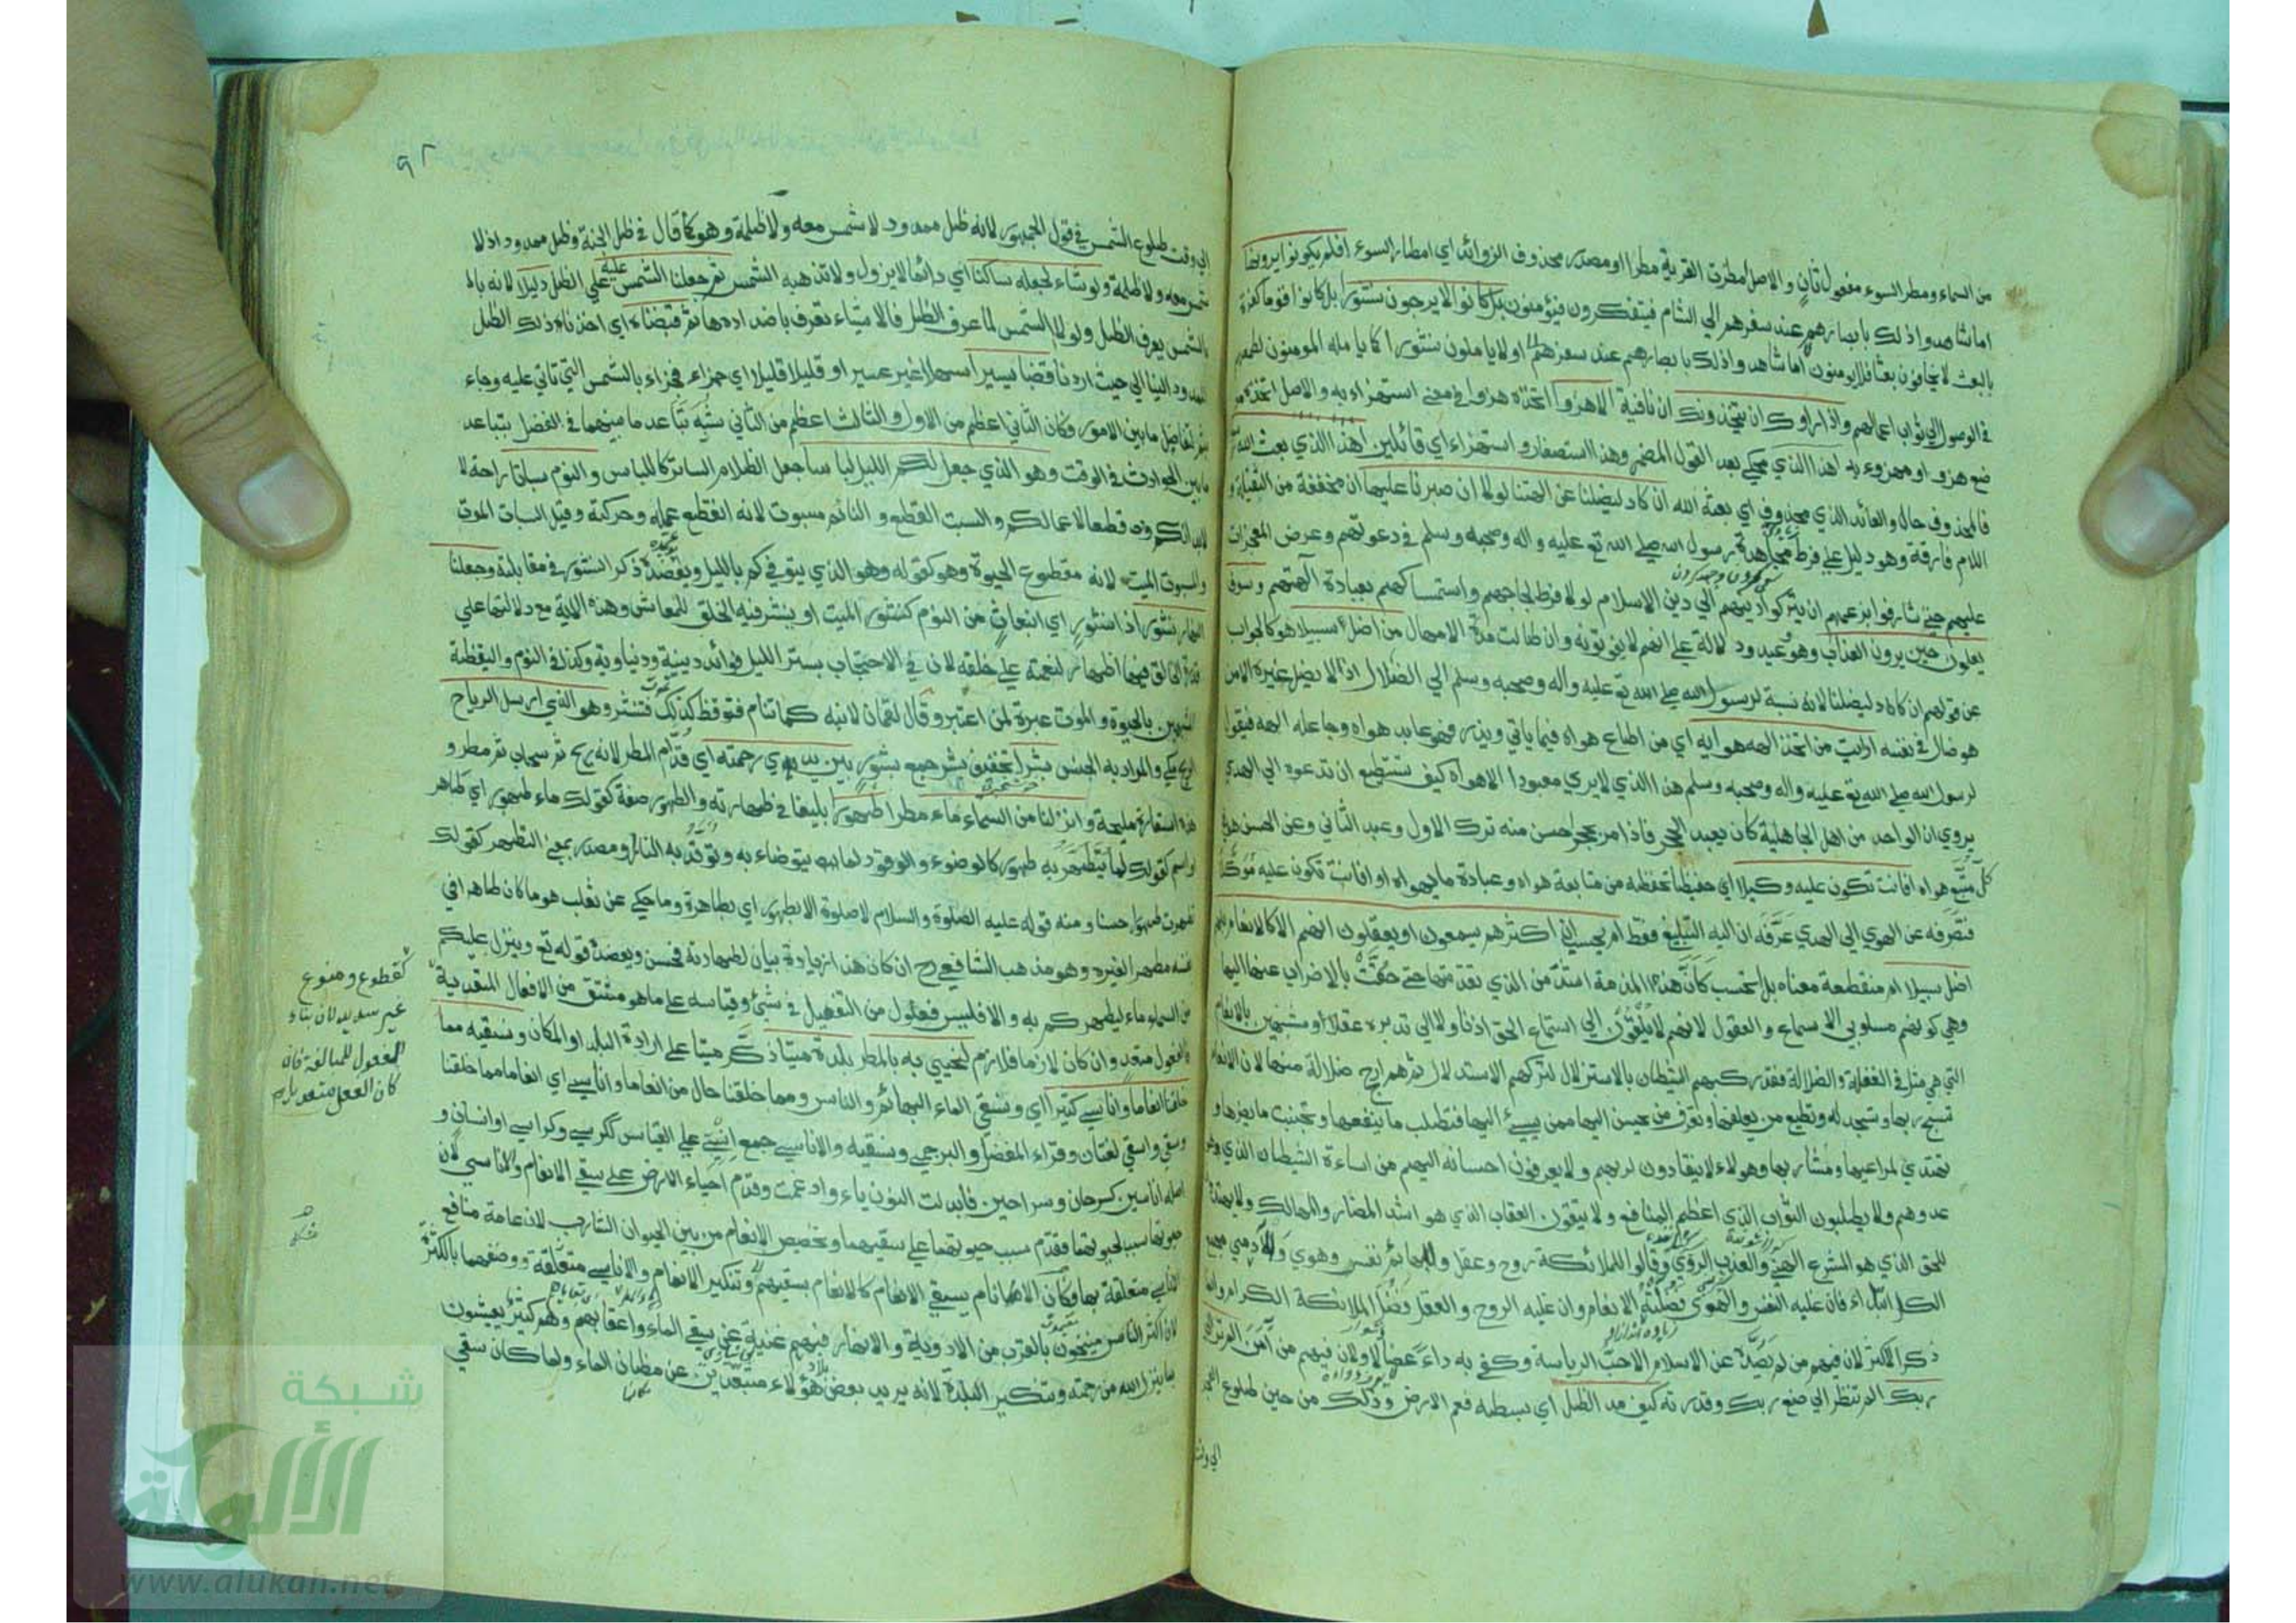 من السماء ومطر السوء مفعول ثان والاصل امطرت القرية مطرا او مصدر محذوف الزوائد اي امطار السوء افلم يكونوا يرونها
اما شاهدوا ذلك بابصارهم عند سفرهم الي الشام فيتفكرون فيؤمنون بل كانوا لا يرجون نشورا بل كانوا قوما كفرة
بالبعث لا يخافون بعثا فلا يومنون كما شاهدوا ذلك بابصارهم عند سفرهم او لا ياملون نشورا كما يامله المومنون لطمعهم
في الوصول الي ثواب اعمالهم واذا راوك ان يتخذونك ان نافية الا هزوا اتخذه هزوا في معني استهزاء به والاصل اتخذه
ضع هزو او مهزوء به اهذا الذي محكي بعد القول المضمر وهذا استصغار واستهزاء اي قائلين اهذا الذي بعث الله
فالمحذوف حال والعائد الذي محذوف اي بعثه الله ان كاد ليضلنا عن الهتنا لولا ان صبرنا عليها ان مخففة من الثقيلة و
اللام فارقة وهو دليل علي فرط مجاهدة رسول الله صلي الله تع عليه واله وصحبه وسلم في دعوتهم وعرض المعجزات
عليهم حتي شارفوا بزعمهم ان يتركوا دينهم الي دين الاسلام لولا فرط لجاجهم واستمساكهم بعبادة الهتهم وسوف
يعلمون حين يرون العذاب وهو وعيد ودلالة علي انهم لا يفوتونه وان طالت مدة الامهال من اضل سبيلا هو كالجواب
عن قولهم ان كاد ليضلنا لانه نسبة لرسول الله صلي الله تع عليه واله وصحبه وسلم الي الضلال اذ لا يضل غيره الا من
هو ضال في نفسه ارايت من اتخذ الهه هوايه اي من اطاع هواه فيما ياتي ويذر فهو عابد هواه وجاعله الهه فيقول
لرسول الله صلي الله تع عليه واله وصحبه وسلم هذا الذي لا يري معبودا الا هواه كيف تستطيع ان تدعوه الي الهدي
يروي ان الواحد من اهل الجاهلية كان يعبد الحجر فاذا مر بحجر احسن منه ترك الاول وعبد الثاني وعن الحسن هو في
كل متبع هواه افانت تكون عليه وكيلا اي حفيظا تحفظه من متابعة هواه وعبادة ما يهواه او افانت تكون عليه موكلا
فتصرفه عن الهوي الي الهدي عرفه ان اليه التبليغ فقط ام تحسب ان اكثرهم يسمعون او يعقلون ان هم الا كالانعام بل هم
اضل سبيلا ام منقطعة معناه بل اتحسب كان هذه المذمة اشد من الذي تقدمتها حتي حقت بالاضراب عنها اليها
وهي كونهم مسلوبي الاسماع والعقول لانهم لا يلقون الي استماع الحق اذنا ولا الي تدبره عقلا ومشبهين بالانعام
التي هي مثل في الغفلة والضلالة فقد ركبهم الشيطان بالاستزلال لتركهم الاستدلال ثم هم ارجح ضلالة منها لان الانعام
تسبح ربها وتسجد له وتطيع من يعلفها وتعرف من يحسن اليها ممن يسيء اليها فتطلب ما ينفعها وتجتنب ما يضرها و
تهتدي لمراعيها ومشاربها وهولاء لا ينقادون لربهم ولا يعرفون احسانه اليهم من اساءة الشيطان الذي هو
عدوهم ولا يطلبون الثواب الذي اعظم المنافع ولا يتقون العقاب الذي هو اشد المضار والمهالك ولا يهتدون
للحق الذي هو المشرع الهني والعذب الروي وقالوا للملائكة روح وعقل وللبهائم نفس وهوي والآدمي مجمع
الكل ابتلاء فان غلبه النفس والهوي فضلته الانعام وان غلبه الروح والعقل فضل الملائكة الكرام وانما
ذكر الاكثر لان فيهم من لم يصده عن الاسلام الا حب الرياسة وكفي به داء عضالا ولان فيهم من آمن الم تر الي
ربك الم تنظر الي صنع ربك وقدرته كيف مد الظل اي بسطه فعم الارض وذلك من حين طلوع الفجر
الي وقت
٩٢
الي وقت طلوع الشمس في قول الجمهور لانه ظل ممدود لا شمس معه ولا ظلمة وهو كما قال في ظل الجنة وظل ممدود اذ لا
شمس معه ولا ظلمة ولو شاء لجعله ساكنا اي دائما لا يزول ولا تذهبه الشمس ثم جعلنا الشمس عليه علي الظل دليلا لانه
بالشمس يعرف الظل ولولا الشمس لما عرف الظل فالاشياء تعرف باضدادها ثم قبضناه اي اخذنا ذلك الظل
الممدود الينا الي حيث اردنا قبضا يسيرا سهلا غير عسير او قليلا قليلا اي جزاء فجزاء بالشمس التي تاتي عليه وجاء
ثم لتفاضل ما بين الامور وكان الثاني اعظم من الاول والثالث اعظم من الثاني شبه تباعد ما بينهما في الفضل بتباعد
ما بين الحوادث في الوقت وهو الذي جعل لكم الليل لباسا جعل الظلام الساتر كاللباس والنوم سباتا راحة لا
بدانكم وقطعا لاعمالكم والسبت القطع والنائم مسبوت لانه انقطع عمله وحركته وقيل السبات الموت
والمسبوت الميت لانه مقطوع الحيوة وهو كقوله وهو الذي يتوفيكم بالليل ويعضده ذكر النشور في مقابلته وجعلنا
النهار نشورا اذا نشور اي انبعاث من النوم كنشور الميت او ينشر فيه الخلق للمعاش وهذه الاية مع دلالتها علي
قدرة الخالق فيها اظهار لنعمته علي خلقه لان في الاحتجاب بستر الليل فوائد دينية ودنياوية وكذا في النوم واليقظة
الشبهين بالحيوة والموت عبرة لمن اعتبر وقال لقمان لابنه كما تنام فتوقظ كذلك تموت فتنشر وهو الذي ارسل الرياح
الريح مكي والمراد به الجنس بشرا تخفيف بشر جمع بشور بين يدي رحمته اي قدام المطر لانه ريح ثم سحاب ثم مطر و
هذه استعارة مليحة وانزلنا من السماء ماء مطرا طهورا بليغا في طهارته والطهور صفة كقولك ماء طهور اي طاهر
واسم كقولك لما يتطهر به طهور كالوضوء والوقود لما يتوضاء به وتوقد به النار ومصدر بمعني التطهر كقولك
تطهرت طهورا حسنا ومنه قوله عليه الصلوة والسلام لا صلوة الا بطهور اي بطاهرة وما حكي عن ثعلب هو ما كان طاهرا في
نفسه مطهرا لغيره وهو مذهب الشافعي رح ان كان هذا زيادة بيان لطهارته فحسن ويعضده قوله تع وينزل عليكم
من السماء ماء ليطهركم به والا فليس فعول من التفعيل في شئ وقياسه علي ما هو مشتق من الافعال المتعدية
كقطوع ومنوع
غير سديد لان بناء
المفعول للمبالغة فان
كان الفعل متعديا
فالفعول متعد وان كان لازما فلازم لنحيي به بالمطر بلدة ميتا ذكر ميتا علي ارادة البلد او المكان ونسقيه مما
خلقنا انعاما واناسي كثيرا اي ونسقي الماء البهائم والناس ومما خلقنا حال من انعاما واناسي اي انعاما مما خلقنا
وسقي واسقي لغتان وقراء المفضل والبرجمي ونسقيه والاناسي جمع انسي علي القياس ككرسي وكراسي او انسان و
اصله اناسين كسرحان وسراحين فابدلت النون ياء وادغمت وقدم احياء الارض علي سقي الانعام والاناسي لان
حيوتها سبب لحيوتهما فقدم سبب حيوتهما علي سقيهما وتخصيص الانعام من بين الحيوان الشارب لان عامة منافع
الاناسي متعلقة بها فكان الانعام بسقي الانعام كالانعام بسقيهم وتنكير الانعام والاناسي متعلقة ووصفهما بالكثرة
لان اكثر الناس منيخون بالقرب من الاودية والانهار فيهم غنية عن سقي الماء واعقابهم وهم كثير يعيشون
بما ينزل الله من رحمته وتنكير البلدة لانه يريد بعض بلاد هؤلاء متبعدين عن مظان الماء ولما كان سقي
شبكة
الألوكة
www.alukah.net